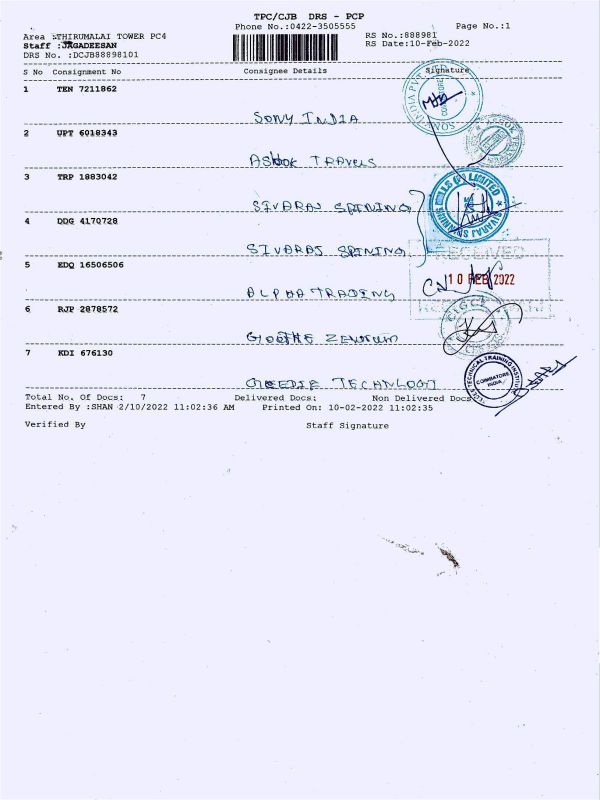 TPC/CJB DRS - PCP
Phone No.:0422-3505555 Page No.:1
Area :THIRUMALAI TOWER PC4 RS No.:888981
Staff :JAGADEESAN RS Date:10-Feb-2022
DRS No. :DCJB88898101
S No Consignment No Consignee Details Signature
1 TEN 7211862
SONY INDIA
2 UPT 6018343
ASHOK TRAVELS
3 TRP 1883042
SIVARAJ SPINING
4 DDG 4170728
SIVARAJ SPINING
5 EDQ 16506506
RECEIVED
10 FEB 2022
ALPHA TRADING
6 RJP 2878572
GOETHE ZENTRUM
7 KDI 676130
TECHNICAL TRAINING INSTITUTE
COIMBATORE
INDIA
TECHNLOGI
Total No. Of Docs: 7 Delivered Docs: Non Delivered Docs
Entered By :SHAN 2/10/2022 11:02:36 AM Printed On: 10-02-2022 11:02:35
Verified By Staff Signature